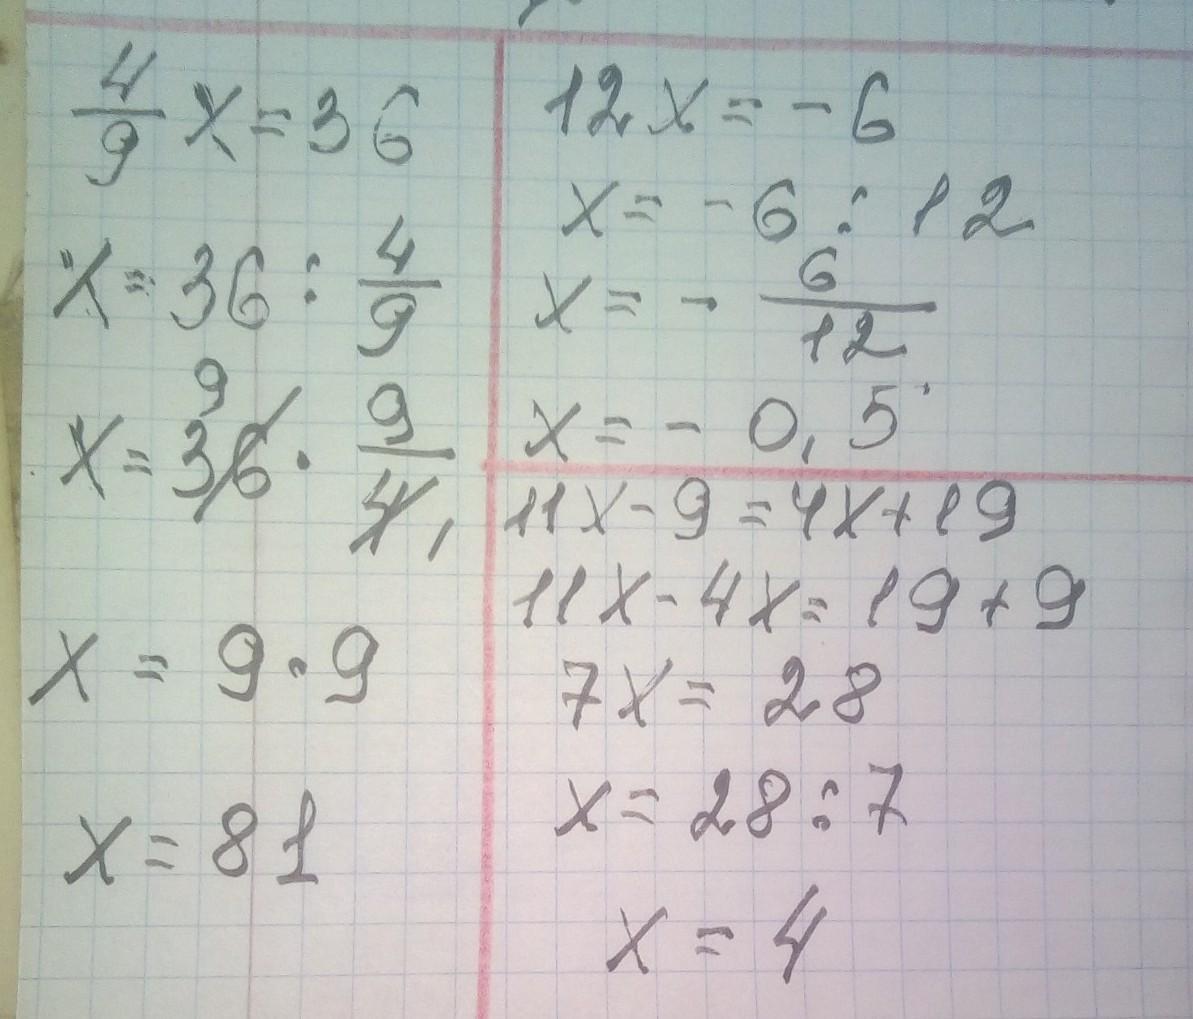 4/9 x = 36
x = 36 : 4/9
9
x = 36 · 9/4,
x = 9 · 9
x = 81
12x = - 6
x = - 6 : 12
x = - 6/12
x = - 0,5
11x - 9 = 4x + 19
11x - 4x = 19 + 9
7x = 28
x = 28 : 7
x = 4